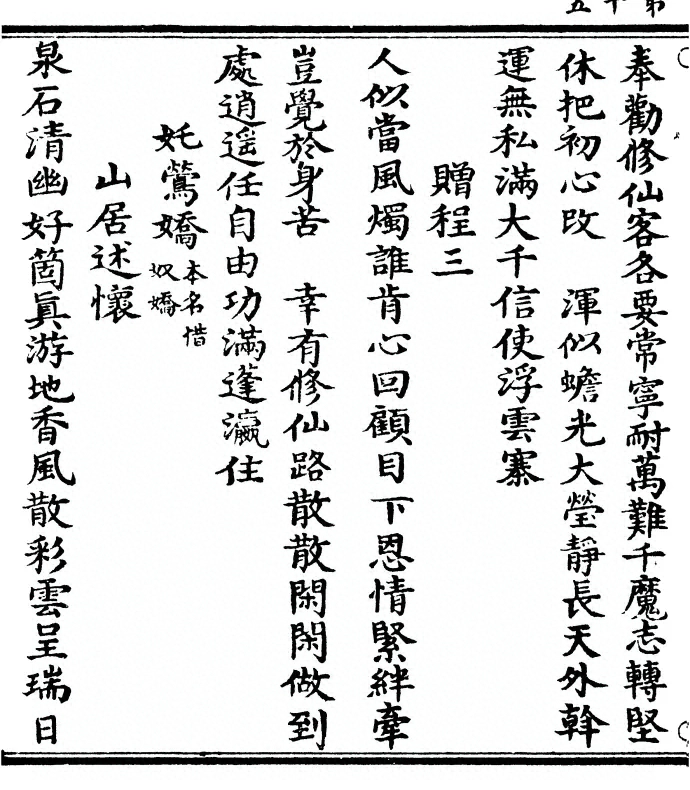 奉勸修仙客各要常寧耐萬難千魔志轉堅
休把初心改　渾似蟾光大瑩靜長天外斡
運無私滿大千信使浮雲寨
贈程三
人似當風燭誰肯心回顧目下恩情緊絆牽
豈覺於身苦　幸有修仙路散散閑閑做到
處逍遥任自由功滿蓬瀛住
妊鶯嬌本名惜
奴嬌
山居述懷
泉石清幽好箇眞游地香風散彩雲呈瑞日